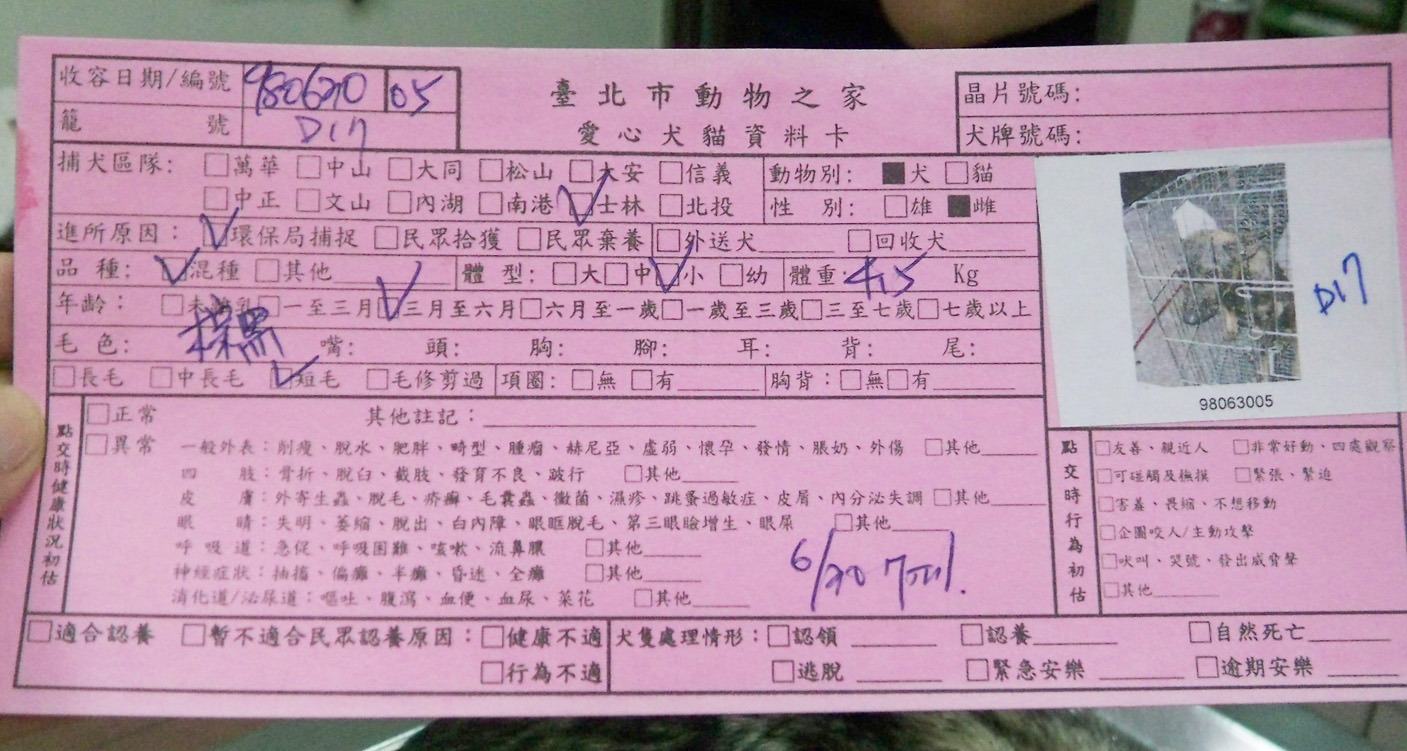 收容日期/編號 980620 05
籠 號 D17
臺北市動物之家
愛心犬貓資料卡
晶片號碼:
犬牌號碼:
捕犬區隊: □萬華 □中山 □大同 □松山 □大安 □信義
□中正 □文山 □內湖 □南港 ☑士林 □北投
動物別: ■犬 □貓
性 別: □雄 ■雌
進所原因: ☑環保局捕捉 □民眾拾獲 □民眾棄養 □外送犬 □回收犬
品 種: ☑混種 □其他 體 型: □大 □中 ☑小 □幼 體重: 4.5 Kg
年齡: □未離乳 □一至三月 ☑三月至六月 □六月至一歲 □一歲至三歲 □三至七歲 □七歲以上
毛 色: 棕黑 嘴: 頭: 胸: 腳: 耳: 背: 尾:
□長毛 □中長毛 ☑短毛 □毛修剪過 項圈: □無 □有 胸背: □無 □有
D17
98063005
點交時健康狀況初估
□正常 其他註記:
□異常 一般外表:削瘦、脫水、肥胖、畸型、腫瘤、赫尼亞、虛弱、懷孕、發情、脹奶、外傷 □其他
四 肢:骨折、脫臼、截肢、發育不良、跛行 □其他
皮 膚:外寄生蟲、脫毛、疥癬、毛囊蟲、黴菌、濕疹、跳蚤過敏症、皮屑、內分泌失調 □其他
眼 睛:失明、萎縮、脫出、白內障、眼眶脫毛、第三眼瞼增生、眼屎 □其他
呼吸道:急促、呼吸困難、咳嗽、流鼻膿 □其他
神經症狀:抽搐、偏癱、半癱、昏迷、全癱 □其他
消化道/泌尿道:嘔吐、腹瀉、血便、血尿、菜花 □其他
6/20
點交時行為初估
□友善、親近人 □非常好動、四處觀察
□可碰觸及撫摸 □緊張、緊迫
□害羞、畏縮、不想移動
□企圖咬人/主動攻擊
□吠叫、哭號、發出威脅聲
□其他
□適合認養 □暫不適合民眾認養原因: □健康不適
□行為不適
犬隻處理情形: □認領 □認養 □自然死亡
□逃脫 □緊急安樂 □逾期安樂